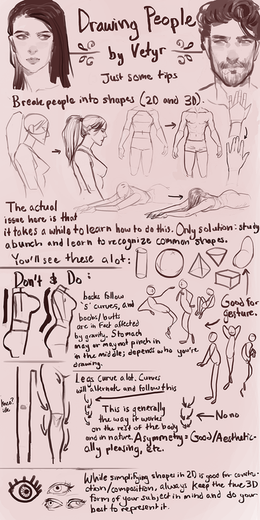 Drawing People
by Vetyr
Just some tips
Break people into shapes (2D and 3D).
The actual
issue here is that
it takes a while to learn how to do this. Only solution: study
a bunch and learn to recognize common shapes.
You'll see these a lot:
Don't & Do:
backs follow
'S' curves, and
boobs/butts
are in fact affected
by gravity. Stomach
may or may not pinch in
in the middle; depends who you're
drawing.
Good for
gesture.
Legs curve a lot. Curves
will alternate and follow this
This is generally
the way it works
on the rest of the body
and in nature. Asymmetry = Good/Aesthetic-
ally pleasing, etc.
No no
While simplifying shapes in 2D is good for
/composition, always keep the true 3D
form of your subject in mind and do your
best to represent it.